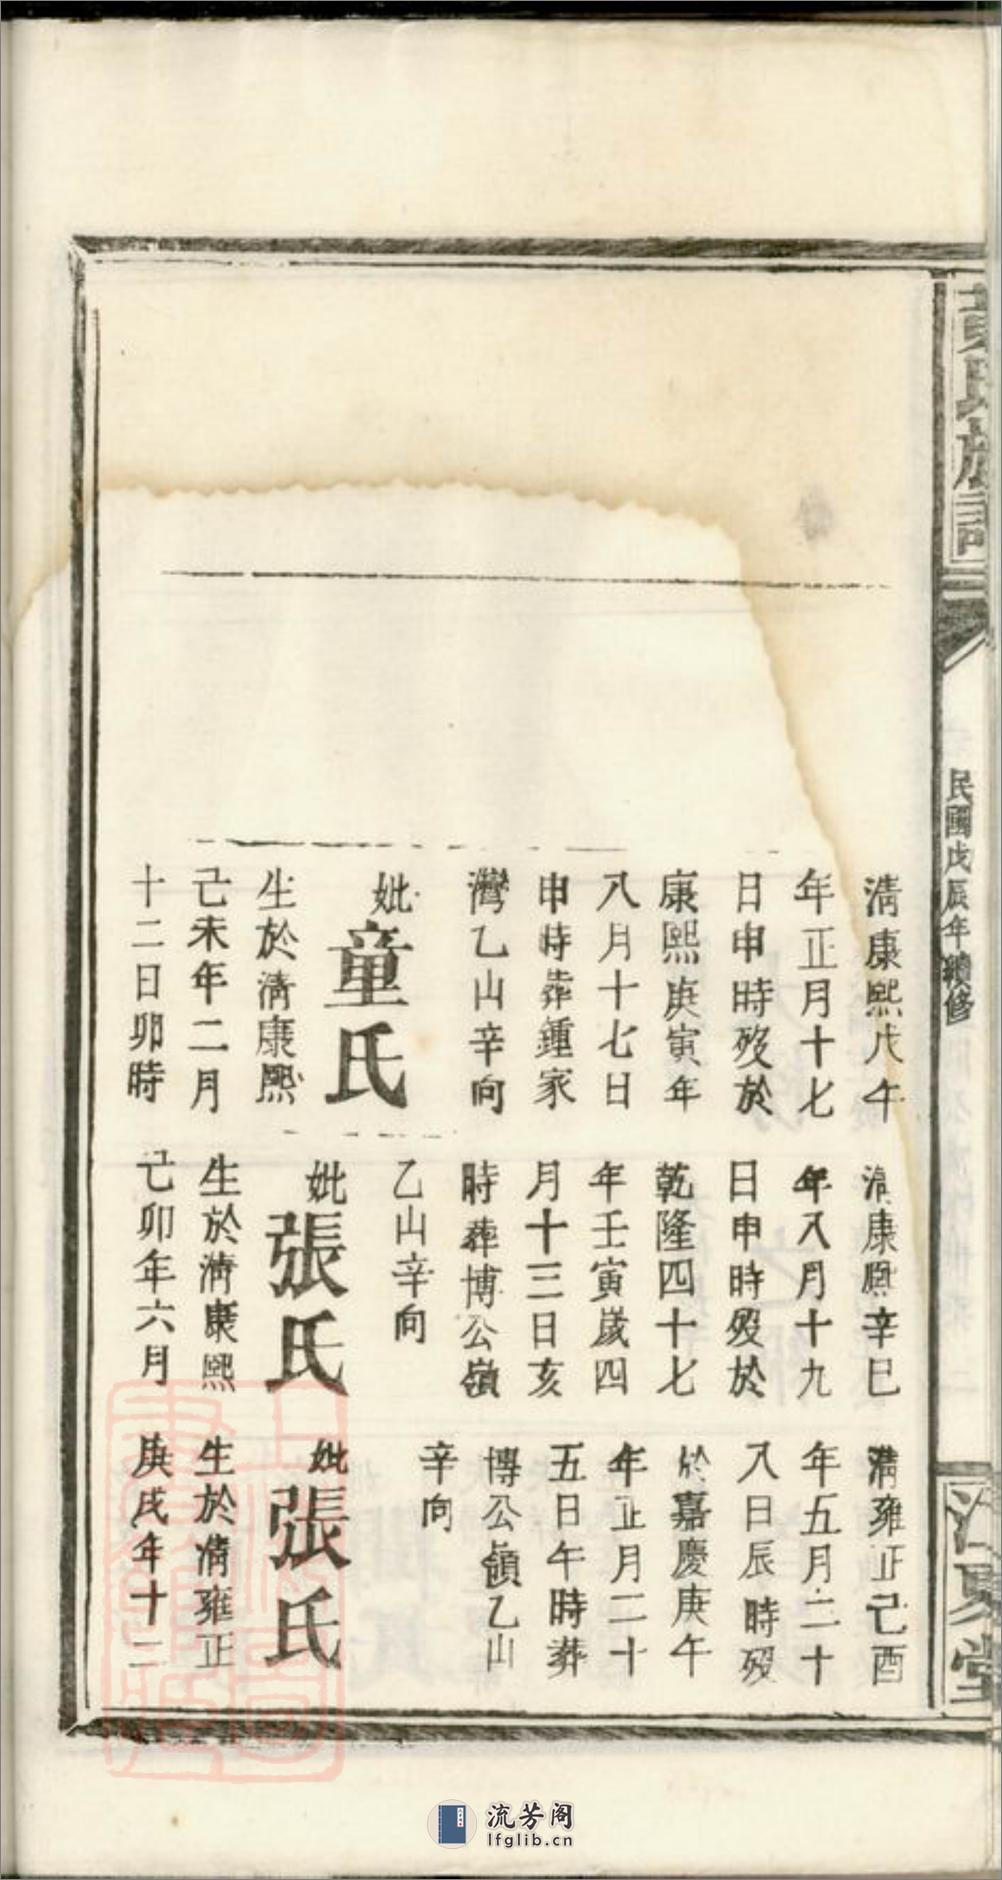 黃氏族譜
民國戊辰年續修
江夏堂
清康熙戊午
年正月十七
日申時歿於
康熙庚寅年
八月十七日
申時葬鍾家
灣乙山辛向
妣童氏
生於清康熙
己未年二月
十二日卯時
清康熙辛巳
年八月十九
日申時歿於
乾隆四十七
年壬寅歲四
月十三日亥
時葬博公嶺
乙山辛向
妣張氏
生於清康熙
己卯年六月
清雍正己酉
年五月二十
八日辰時歿
於嘉慶庚午
年正月二十
五日午時葬
博公嶺乙山
辛向
妣張氏
生於清雍正
庚戌年十二
流芳阁
lfglib.cn